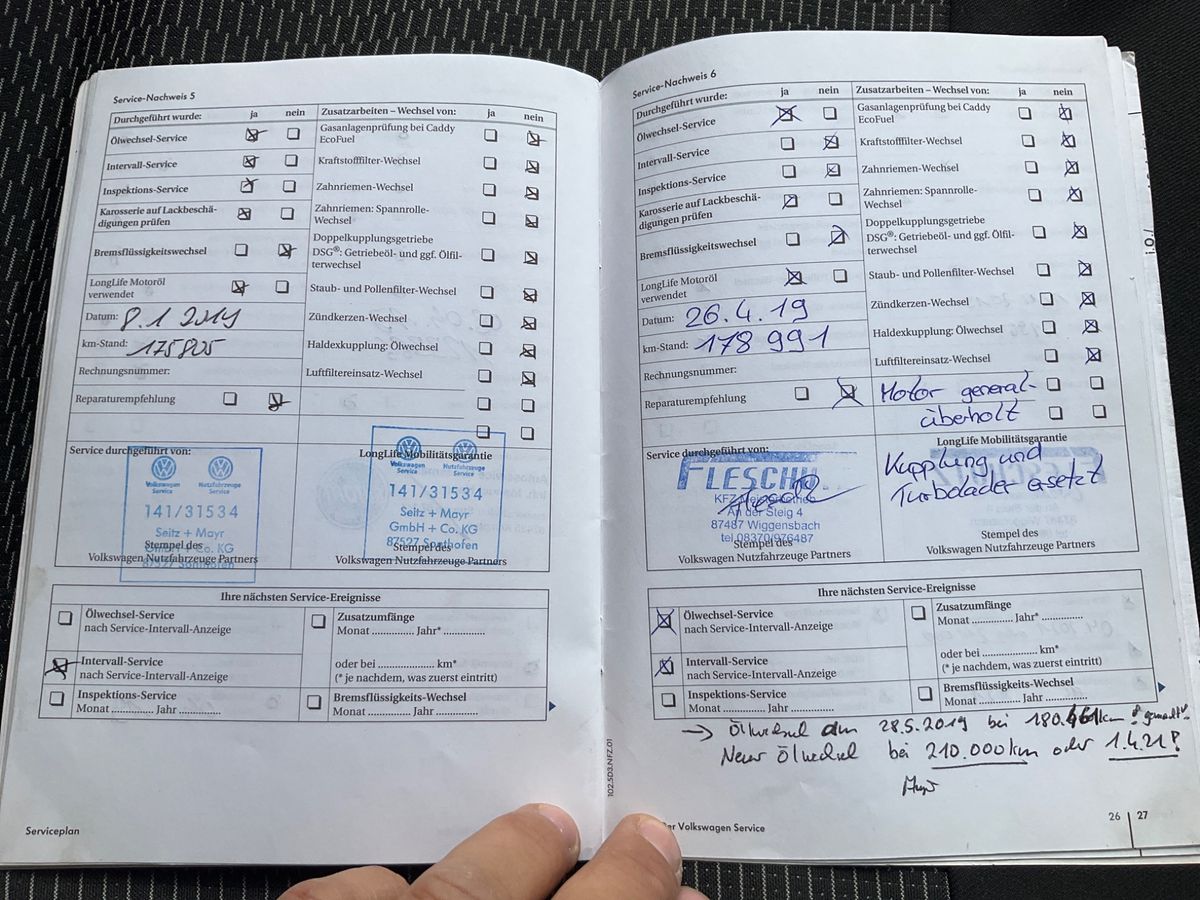 Service-Nachweis 5
Durchgeführt wurde: ja nein Zusatzarbeiten – Wechsel von: ja nein
Ölwechsel-Service
Gasanlagenprüfung bei Caddy
EcoFuel
Intervall-Service
Kraftstofffilter-Wechsel
Inspektions-Service
Zahnriemen-Wechsel
Karosserie auf Lackbeschä-
digungen prüfen
Zahnriemen: Spannrolle-
Wechsel
Bremsflüssigkeitswechsel
Doppelkupplungsgetriebe
DSG®: Getriebeöl- und ggf. Ölfil-
terwechsel
LongLife Motoröl
verwendet
Staub- und Pollenfilter-Wechsel
Datum: 8.1 2019
Zündkerzen-Wechsel
km-Stand: 175805
Haldexkupplung: Ölwechsel
Rechnungsnummer:
Luftfiltereinsatz-Wechsel
Reparaturempfehlung
Service durchgeführt von:
Volkswagen Service
Nutzfahrzeuge Service
141/31534
Seitz + Mayr
GmbH + Co. KG
87527 Sonthofen
Stempel des
Volkswagen Nutzfahrzeuge Partners
LongLife Mobilitätsgarantie
Volkswagen Service
Nutzfahrzeuge Service
141/31534
Seitz + Mayr
GmbH + Co. KG
87527 Sonthofen
Stempel des
Volkswagen Nutzfahrzeuge Partners
Ihre nächsten Service-Ereignisse
Ölwechsel-Service
nach Service-Intervall-Anzeige
Intervall-Service
nach Service-Intervall-Anzeige
Inspektions-Service
Monat .............. Jahr ..............
Zusatzumfänge
Monat .............. Jahr* ..............
oder bei ................... km*
(* je nachdem, was zuerst eintritt)
Bremsflüssigkeits-Wechsel
Monat .............. Jahr ..............
Serviceplan
102.5D3.NFZ.01
Service-Nachweis 6
Durchgeführt wurde: ja nein Zusatzarbeiten – Wechsel von: ja nein
Ölwechsel-Service
Gasanlagenprüfung bei Caddy
EcoFuel
Intervall-Service
Kraftstofffilter-Wechsel
Inspektions-Service
Zahnriemen-Wechsel
Karosserie auf Lackbeschä-
digungen prüfen
Zahnriemen: Spannrolle-
Wechsel
Bremsflüssigkeitswechsel
Doppelkupplungsgetriebe
DSG®: Getriebeöl- und ggf. Ölfil-
terwechsel
LongLife Motoröl
verwendet
Staub- und Pollenfilter-Wechsel
Datum: 26.4.19
Zündkerzen-Wechsel
km-Stand: 178 991
Haldexkupplung: Ölwechsel
Rechnungsnummer:
Luftfiltereinsatz-Wechsel
Reparaturempfehlung
Motor general-
überholt
Service durchgeführt von:
KFZ-Meisterbetrieb
An der Steig 4
87487 Wiggensbach
tel.08370/976487
Stempel des
Volkswagen Nutzfahrzeuge Partners
LongLife Mobilitätsgarantie
Kupplung und
Turbolader ersetzt
Stempel des
Volkswagen Nutzfahrzeuge Partners
Ihre nächsten Service-Ereignisse
Ölwechsel-Service
nach Service-Intervall-Anzeige
Intervall-Service
nach Service-Intervall-Anzeige
Inspektions-Service
Monat .............. Jahr ..............
Zusatzumfänge
Monat .............. Jahr* ..............
oder bei ................... km*
(* je nachdem, was zuerst eintritt)
Bremsflüssigkeits-Wechsel
Monat .............. Jahr ..............
→ Ölwechsel am 28.5.2019 bei 180.461km ! gemacht!
Neuer Ölwechsel bei 210.000km oder 1.4.21!
Der Volkswagen Service
26 | 27
i.O./